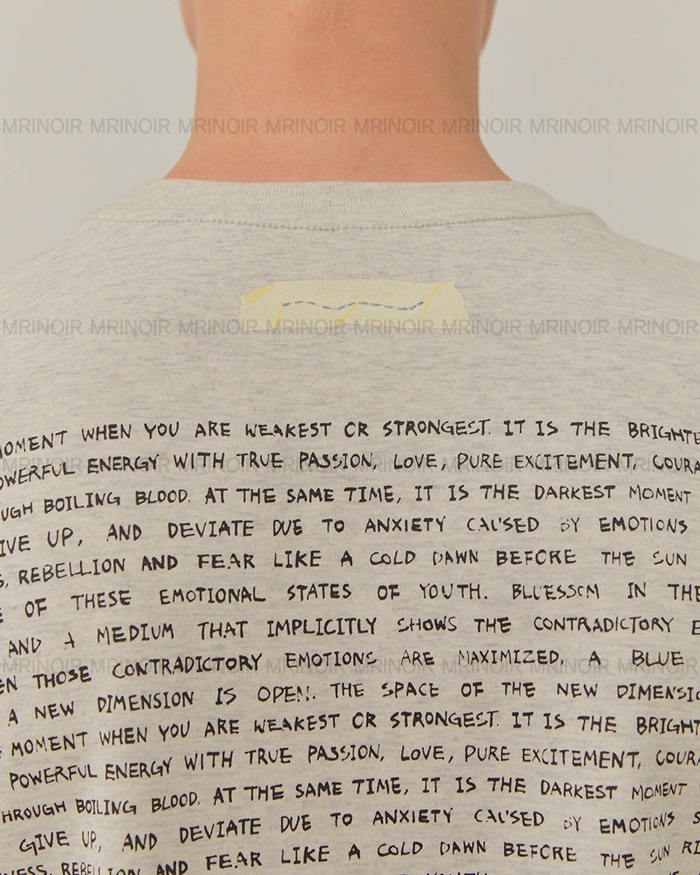 MRINOIR MRINOIR MRINOIR MRINOIR MRINOIR MRINOIR MRINOIR MRINOIR
MRINOIR MRINOIR MRINOIR MRINOIR MRINOIR MRINOIR MRINOIR MRINOIR
MOMENT WHEN YOU ARE WEAKEST OR STRONGEST. IT IS THE BRIGHTE
OWERFUL ENERGY WITH TRUE PASSION, LOVE, PURE EXCITEMENT, COURA
MRINOIR MRINOIR MRINOIR MRINOIR MRINOIR MRINOIR MRINOIR MRINOIR
UGH BOILING BLOOD. AT THE SAME TIME, IT IS THE DARKEST MOMENT
IVE UP, AND DEVIATE DUE TO ANXIETY CAUSED BY EMOTIONS
S, REBELLION AND FEAR LIKE A COLD DAWN BEFORE THE SUN
E OF THESE EMOTIONAL STATES OF YOUTH. BLUESSOM IN THE
AND A MEDIUM THAT IMPLICITLY SHOWS THE CONTRADICTORY E
EN THOSE CONTRADICTORY EMOTIONS ARE MAXIMIZED, A BLUE
MRINOIR MRINOIR MRINOIR MRINOIR MRINOIR MRINOIR MRINOIR MRINOIR
A NEW DIMENSION IS OPEN. THE SPACE OF THE NEW DIMENSIO
MOMENT WHEN YOU ARE WEAKEST OR STRONGEST. IT IS THE BRIGHT
POWERFUL ENERGY WITH TRUE PASSION, LOVE, PURE EXCITEMENT, COURA
HROUGH BOILING BLOOD. AT THE SAME TIME, IT IS THE DARKEST MOMENT
GIVE UP, AND DEVIATE DUE TO ANXIETY CAUSED BY EMOTIONS S
NESS, REBELLION AND FEAR LIKE A COLD DAWN BEFORE THE SUN RI